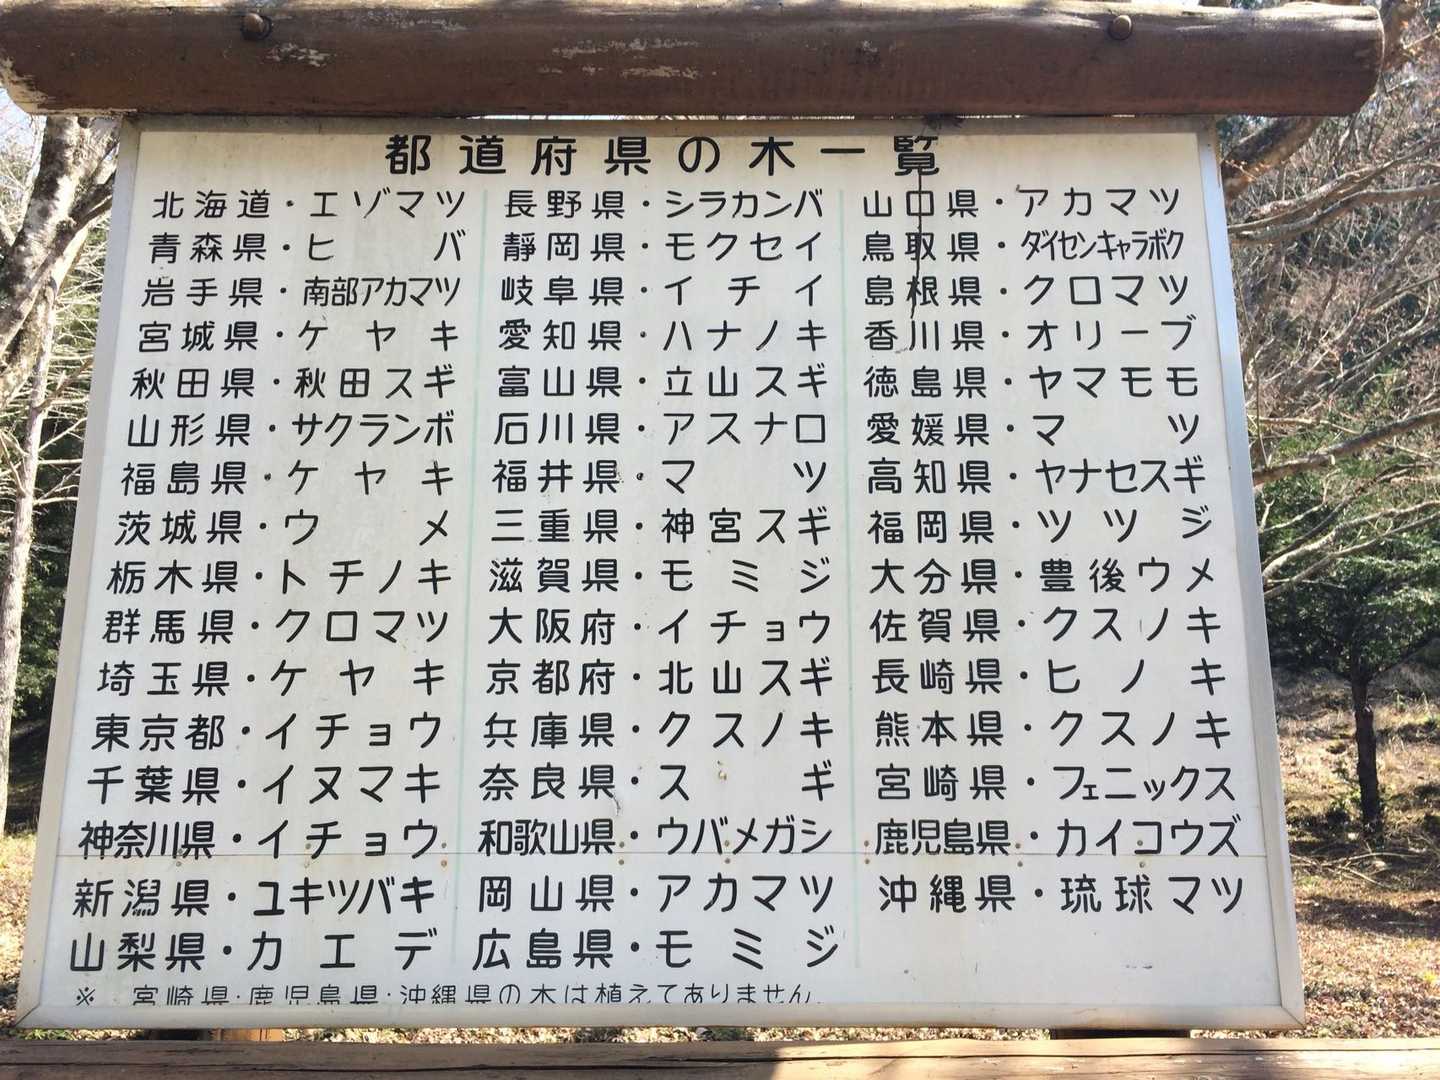 都道府県の木一覧
北海道・エゾマツ
青森県・ヒバ
岩手県・南部アカマツ
宮城県・ケヤキ
秋田県・秋田スギ
山形県・サクランボ
福島県・ケヤキ
茨城県・ウメ
栃木県・トチノキ
群馬県・クロマツ
埼玉県・ケヤキ
東京都・イチョウ
千葉県・イヌマキ
神奈川県・イチョウ
新潟県・ユキツバキ
山梨県・カエデ
長野県・シラカンバ
静岡県・モクセイ
岐阜県・イチイ
愛知県・ハナノキ
富山県・立山スギ
石川県・アスナロ
福井県・マツ
三重県・神宮スギ
滋賀県・モミジ
大阪府・イチョウ
京都府・北山スギ
兵庫県・クスノキ
奈良県・スギ
和歌山県・ウバメガシ
岡山県・アカマツ
広島県・モミジ
山口県・アカマツ
鳥取県・ダイセンキャラボク
島根県・クロマツ
香川県・オリーブ
徳島県・ヤマモモ
愛媛県・マツ
高知県・ヤナセスギ
福岡県・ツツジ
大分県・豊後ウメ
佐賀県・クスノキ
長崎県・ヒノキ
熊本県・クスノキ
宮崎県・フェニックス
鹿児島県・カイコウズ
沖縄県・琉球マツ
※ 宮崎県・鹿児島県・沖縄県の木は植えてありません。